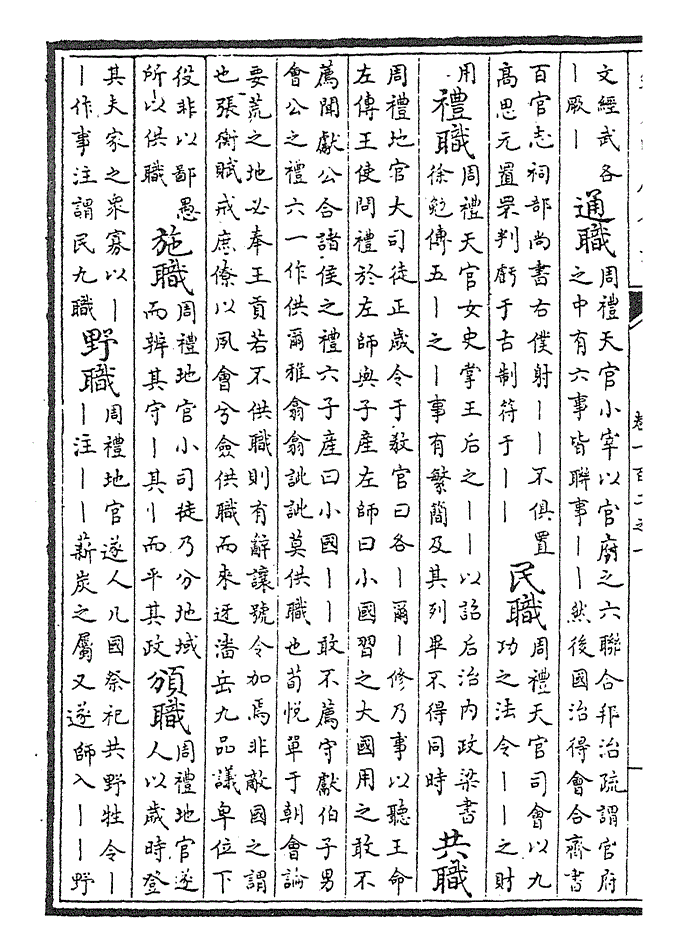 文經武各
丨厥丨
通職
周禮天官小宰以官府之六聯合邦治疏謂官府
之中有六事皆聯事丨丨然後國治得會合齊書
百官志祠部尚書右僕射丨丨不俱置
高思元置罘判虧于古制符于丨丨
民職
周禮天官司會以九
功之法令丨丨之財
用
禮職
周禮天官女史掌王后之丨丨以詔后治内政梁書
徐勉傳五丨之丨事有繁簡及其列畢不得同時
共職
周禮地官大司徒正歲令于敎官曰各丨爾丨修乃事以聽王命
左傳王使問禮於左師與子產左師曰小國習之大國用之敢不
薦聞獻公合諸侯之禮六子產曰小國丨丨敢不薦守獻伯子男
會公之禮六一作供爾雅翕翕訿訿莫供職也荀悅單于朝會論
要荒之地必奉王貢若不供職則有辭讓號令加焉非敵國之謂
也張衡賦戒庶僚以夙會兮僉供職而來迓潘岳九品議卑位下
役非以鄙愚
所以供職
施職
周禮地官小司徒乃分地域
而辨其守丨其丨而平其政
頒職
周禮地官遂
人以歲時登
其夫家之衆寡以丨
丨作事注謂民九職
野職
周禮地官遂人凡國祭祀共野牲令丨
丨注丨丨薪炭之屬又遂師入丨丨野